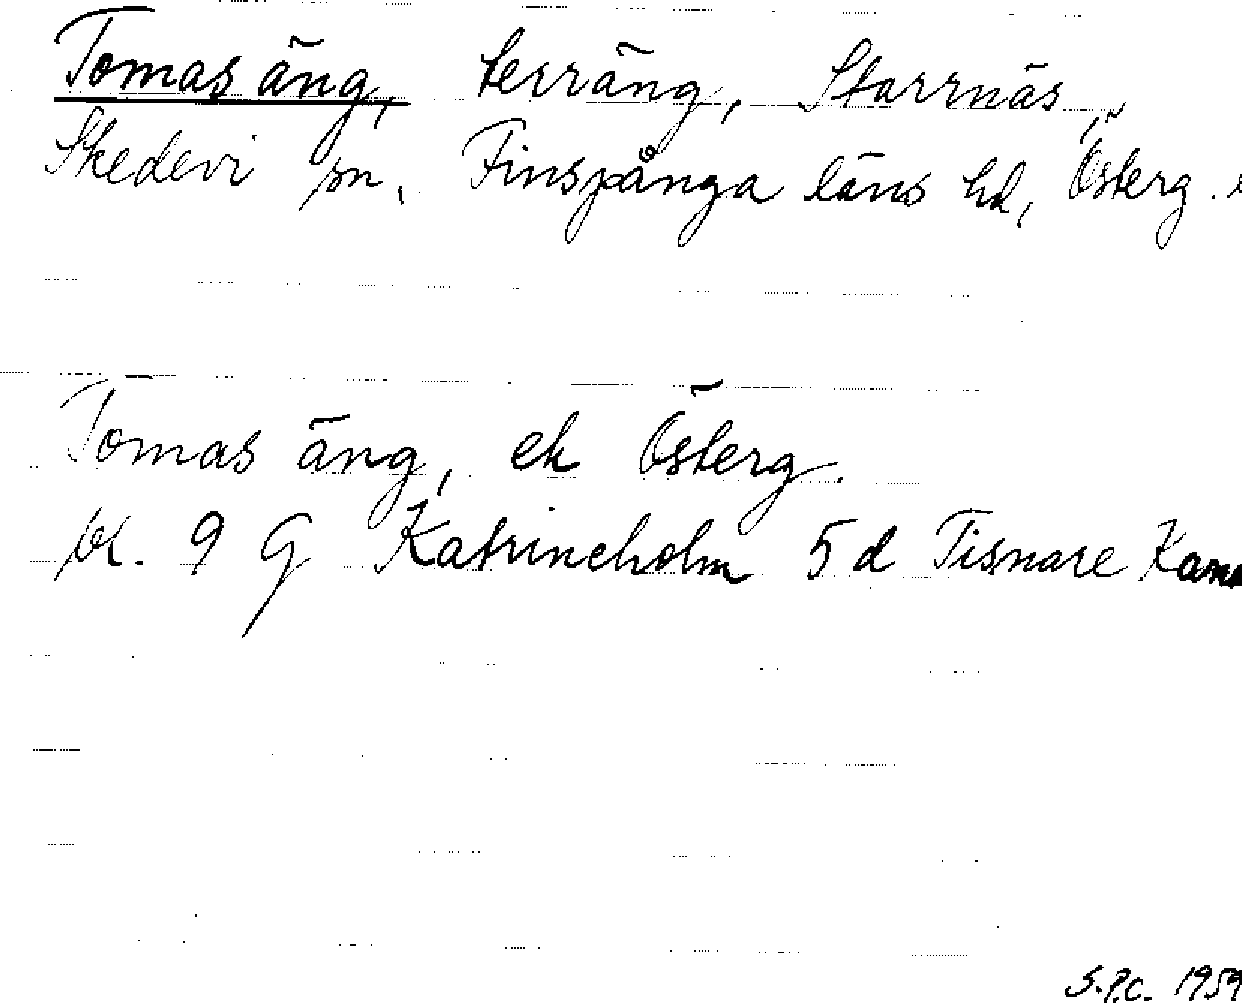 Tomas äng, terräng, Starrnäs,
Skedevi sn, Finspånga läns hd, Österg.
Tomas äng, ek Österg.
bl. 9 G Katrineholm 5 d Tisnare Kana
S.P.C. 1959